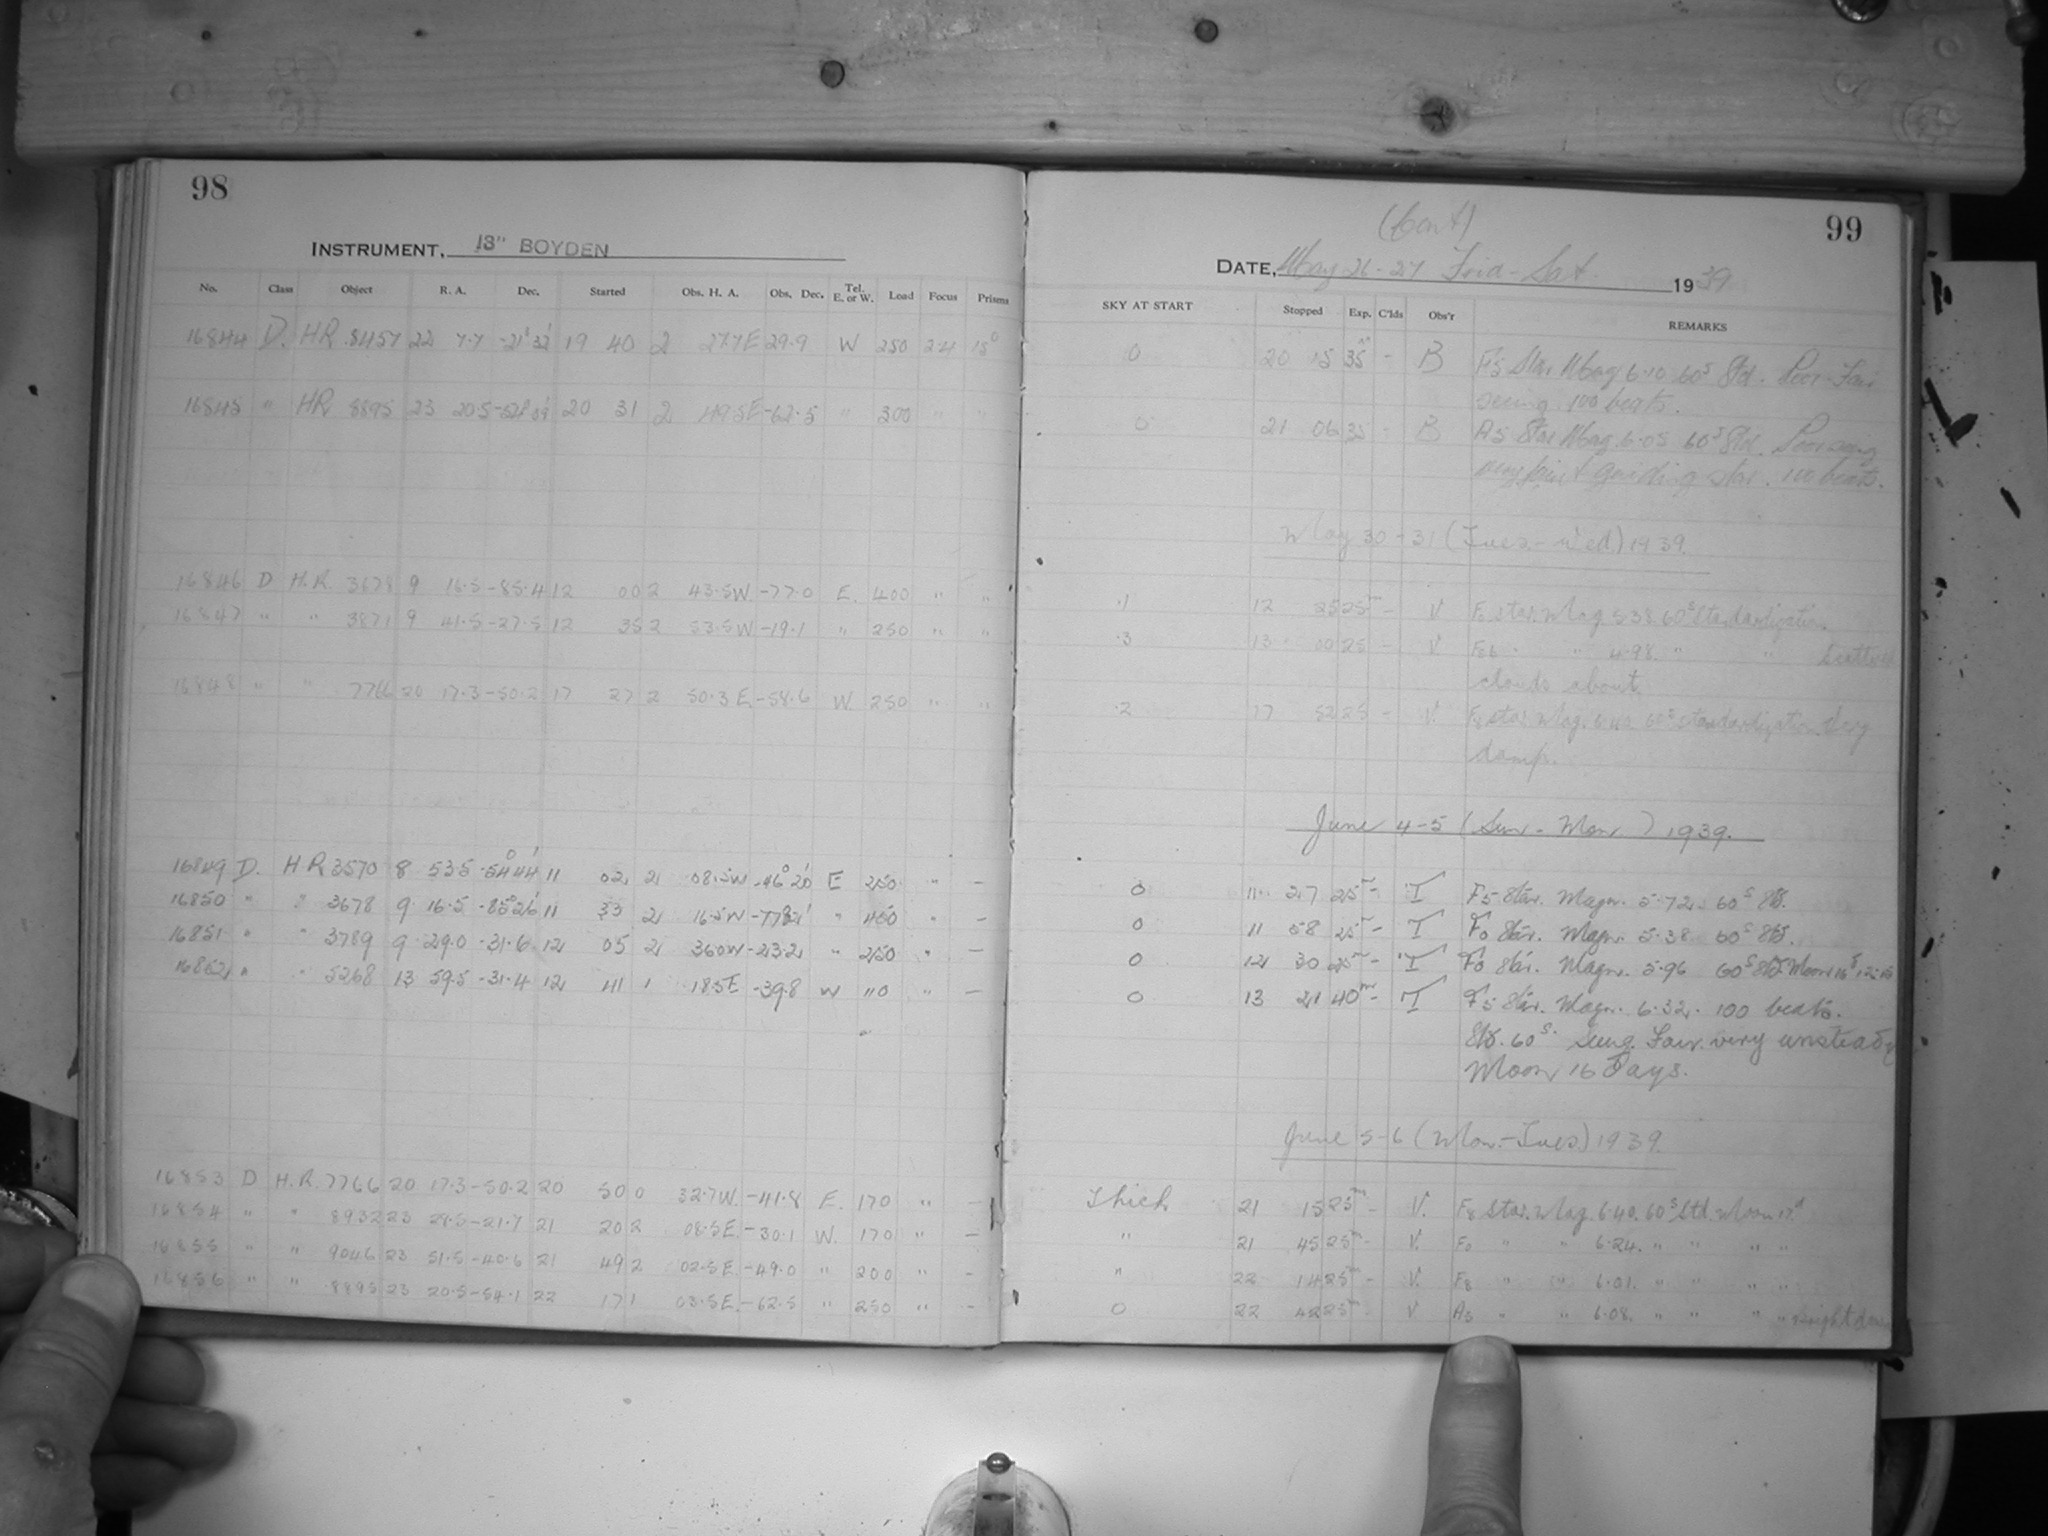 98
INSTRUMENT, 13" BOYDEN
No. Class Object R. A. Dec. Started Obs. H. A. Obs. Dec. Tel. E. or W. Load Focus Prisms
16844 D. HR 8457 22 7.7 -21° 32' 19 40 2 27.7E 29.9 W 250 24 15°
16845 " HR 8895 23 20.5 20 31 2 49.5E -62.5 " 300 " "
16846 D H.R. 3678 9 16.5 -85.4 12 00 2 43.5W. -77.0 E. 400 " "
16847 " " 3871 9 41.5 -27.5 12 35 2 53.5W -19.1 " 250 " "
16848 " " 7766 20 17.3 -50.2 17 27 2 50.3E -58.6 W. 250 " "
16849 D. H R 3570 8 53.5 -54° 44' 11 02 2 08.5W -46° 20' E 250 " -
16850 " " 3678 9 16.5 -85° 26' 11 33 2 16.5W " 400 " -
16851 " " 3789 9 29.0 -31.6 12 05 2 36.0W -23.2 " 250 " -
16852 " " 5268 13 59.5 -31.4 12 41 1 18.5E -39.8 W 110 " -
16853 D H.R. 7766 20 17.3 -50.2 20 50 0 32.7W. -41.8 E. 170 " -
16854 " " 8932 23 28.5 -21.7 21 20 2 08.5E. -30.1 W. 170 " -
16855 " " 9046 23 51.5 -40.6 21 49 2 02.5E. -49.0 " 200 " -
16856 " " 8895 23 20.5 -54.1 22 17 1 03.5E. -62.5 " 250 " -
99
(Cont)
DATE, May 26-27 Frid-Sat. 1939
SKY AT START Stopped Exp. C'lds Obs'r REMARKS
0 20 15 35m - B F5 Star Mag 6.10 60s Std. Poor-Fair
seeing. 100 beats.
0 21 06 35 - B A5 Star Mag. 6.08 60s Std. Poor seeing
very faint guiding star. 100 beats.
May 30-31 (Tues-Wed) 1939.
.1 12 25 25m - V F0 star. Mag 5.38 60s Standardization.
.3 13 00 25 - V " " 4.98. " " Scattered
clouds about.
.2 17 52 25 - V. F8 star. Mag. 6.40 60s standardization. Very
damp.
June 4-5 (Sun-Mon) 1939.
0 11 27 25m - T F5 Star. Magn. 5.72. 60s Std.
0 11 58 25m - T F0 Star. Magn. 5.38 60s Std.
0 12 30 25m - T F0 Star. Magn. 5.96 60s Std Moon
0 13 21 40m - T F5 Star. Magn. 6.32. 100 beats.
Std. 60s. Seeing Fair. very unsteady
Moon 16 Days.
June 5-6 (Mon.-Tues) 1939.
Thick 21 15 25m - V. F8 Star. Mag. 6.40. 60s Std. Moon 17d
" 21 45 25m - V. F0 " " 6.24. " " " "
" 22 14 25m - V F8 " " 6.01. " " " "
0 22 42 25m - V A5 " " 6.08. " " " "